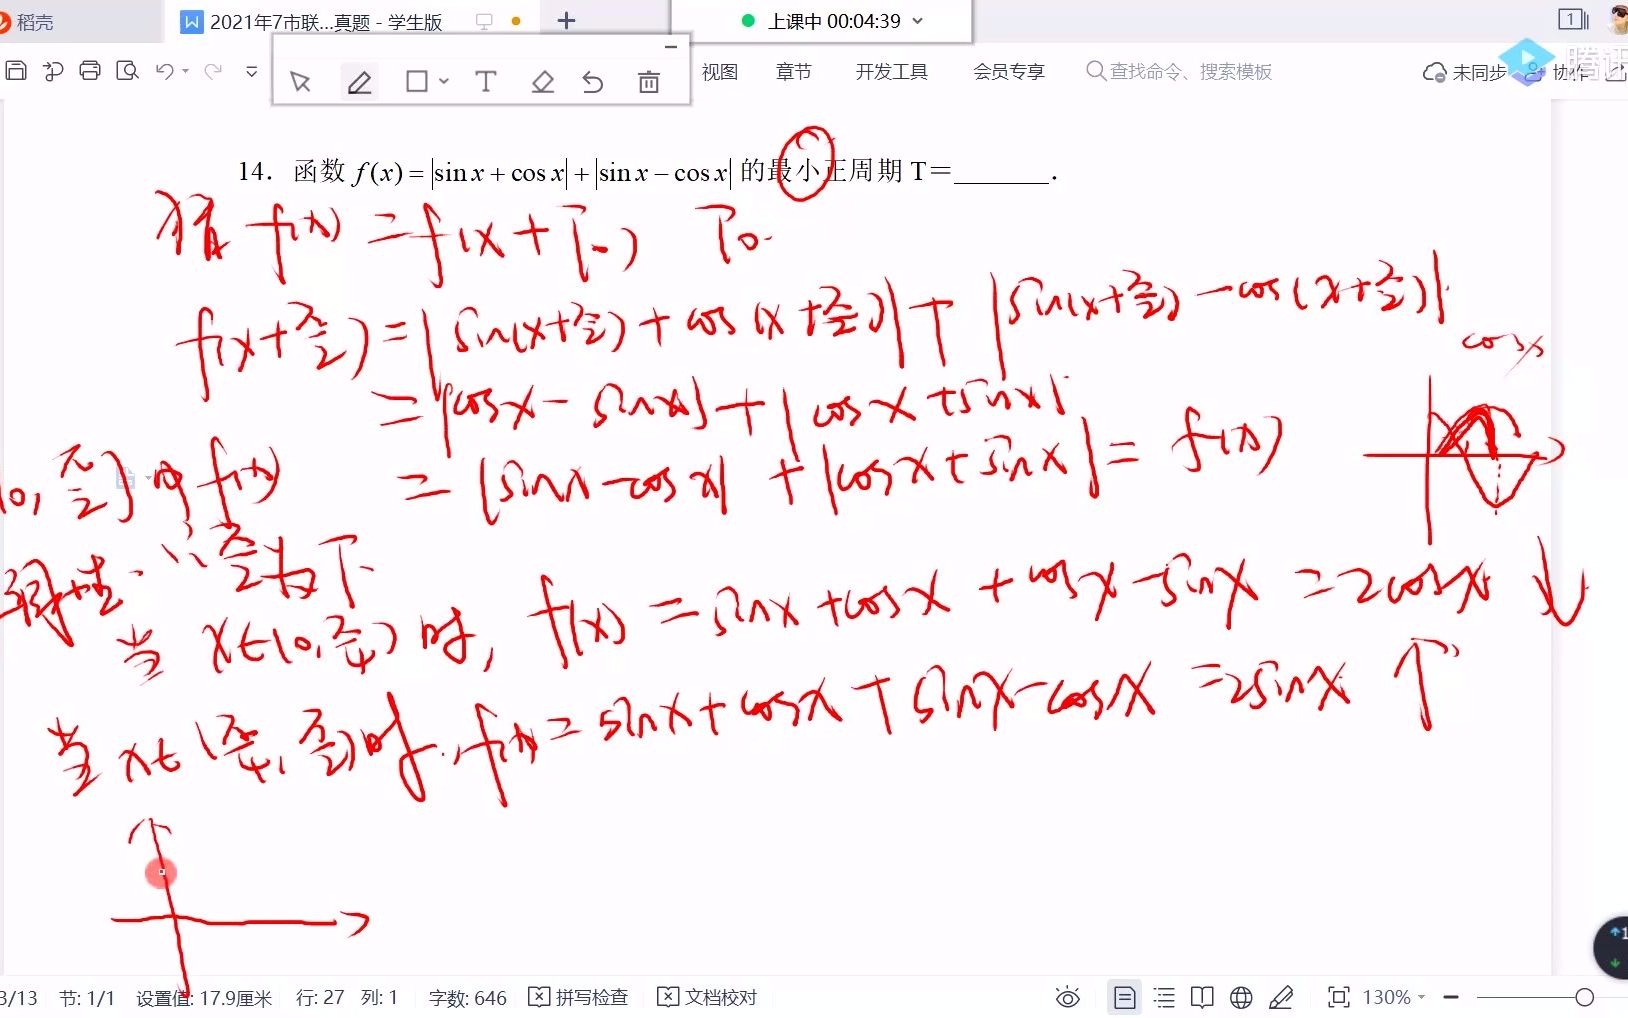 稻壳
2021年7市联...真题 - 学生版
上课中 00:04:39
视图 章节 开发工具 会员专享 查找命令、搜索模板 未同步 协作
腾讯
14. 函数 f(x) = |sin x + cos x| + |sin x − cos x| 的最小正周期 T＝______.
猜 f(x) = f(x + T0) T0.
f(x+π/2) = |sin(x+π/2) + cos(x+π/2)| + |sin(x+π/2) - cos(x+π/2)|
cosx
= |cosx - sinx| + |cosx + sinx|
= |sinx - cosx| + |cosx + sinx| = f(x)
0, π/2] 内 f(x)
调性. ∵ π/2 为 T
当 x∈(0, π/4) 时, f(x) = sinx + cosx + cosx - sinx = 2cosx ↓
当 x∈(π/4, π/2) 时, f(x) = sinx + cosx + sinx - cosx = 2sinx ↑
3/13 节: 1/1 设置值: 17.9厘米 行: 27 列: 1 字数: 646 拼写检查 文档校对 130%